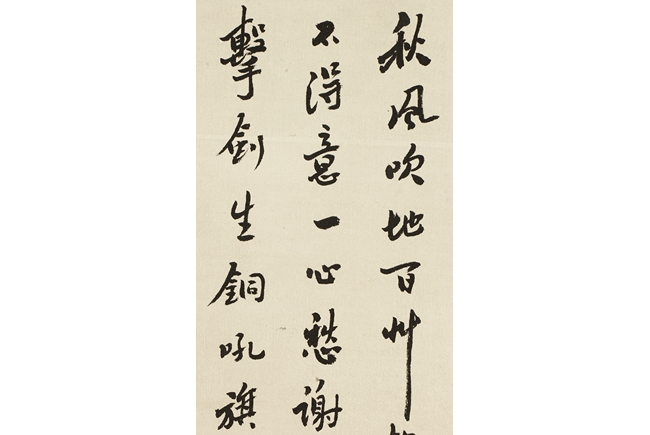 秋風吹地百艸
不得意一心愁謝
擊劍生銅吼旗